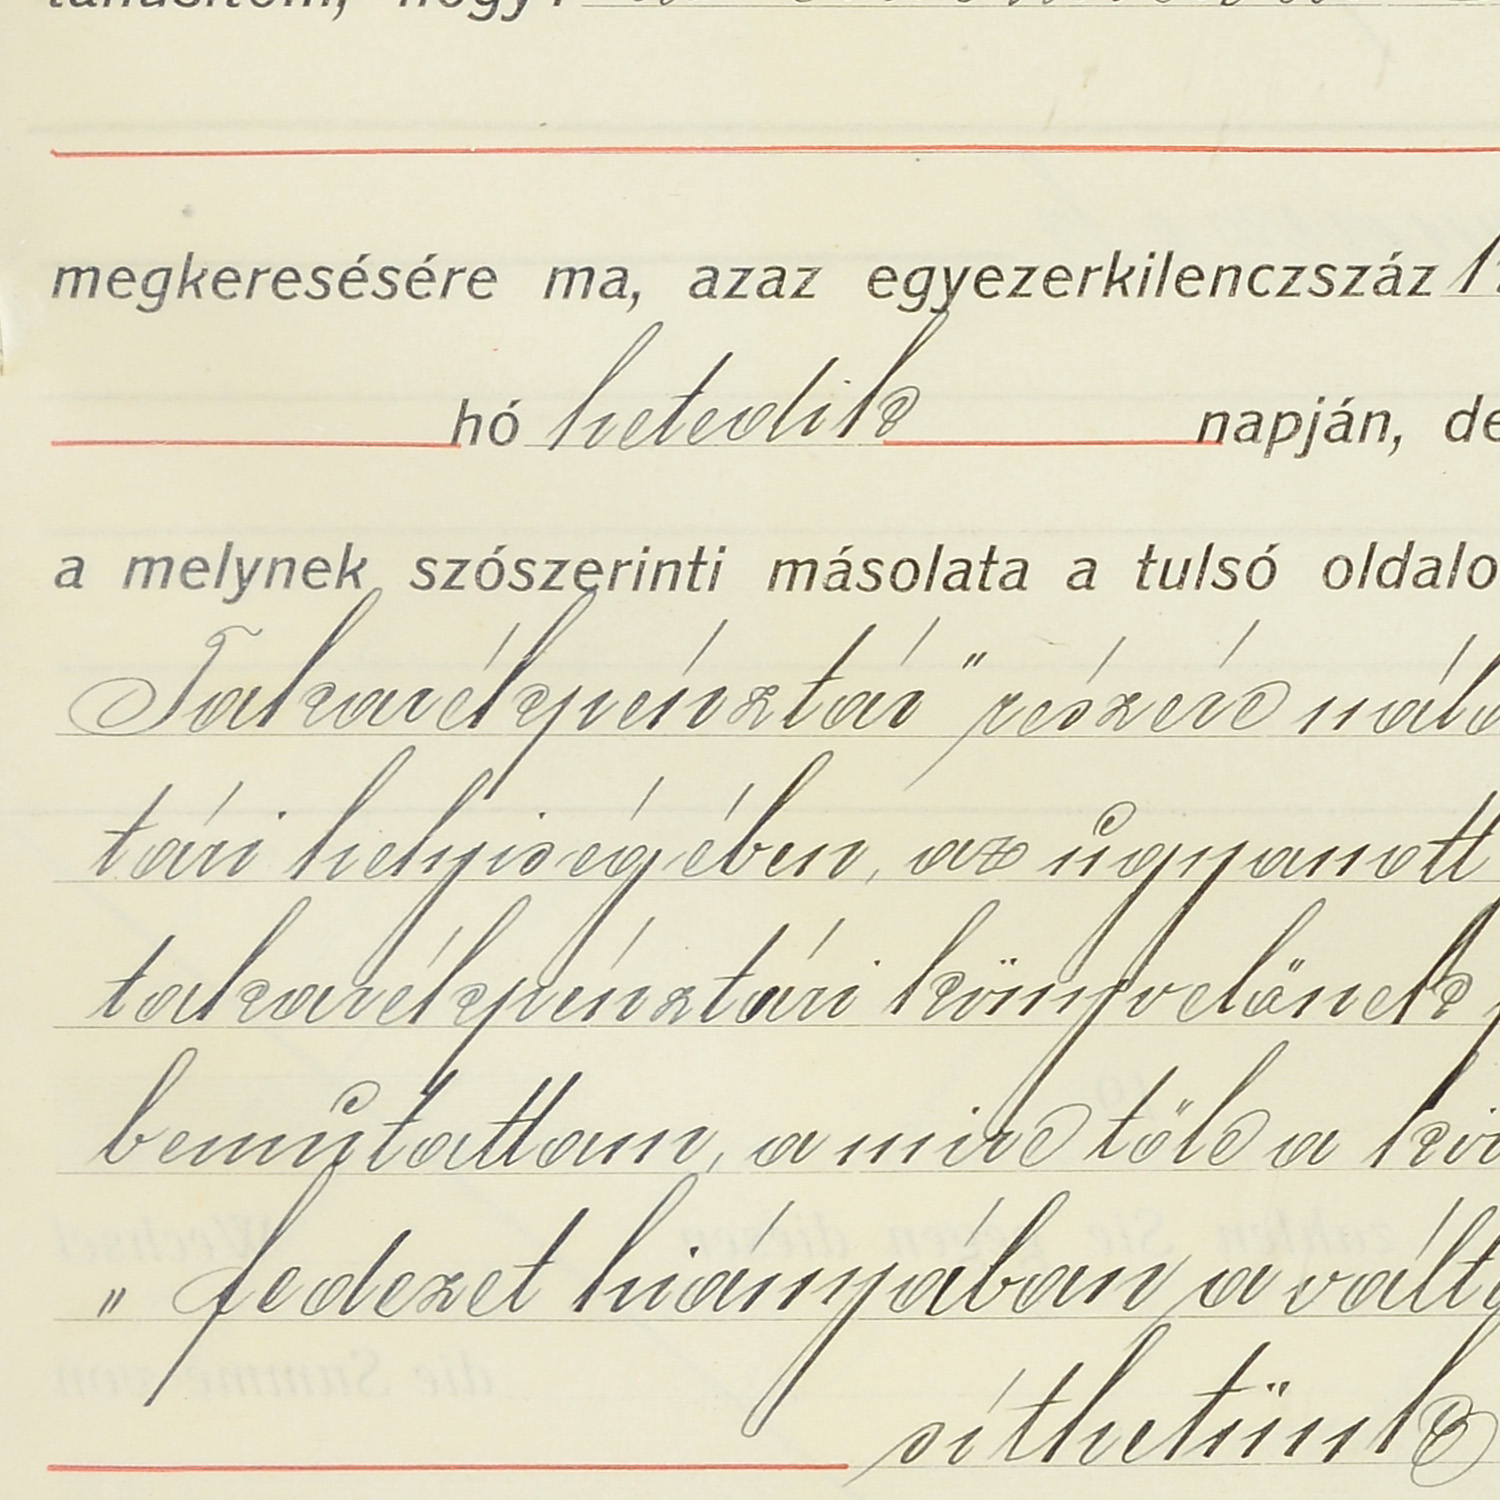 tanúsítom, hogy:
megkeresésére ma, azaz egyezerkilenczszáz
hó hetedik napján, de
a melynek szószerinti másolata a tulsó oldalo
Takarékpénztár" részére nála
tári helyiségében, az ugyanott
takarékpénztári könyvelőnek
bemutattam, a mire tőle a kö
" fedezet hiányában a vált
síthetünk
zahlen Sie gegen diesen Wechsel
die Summe von